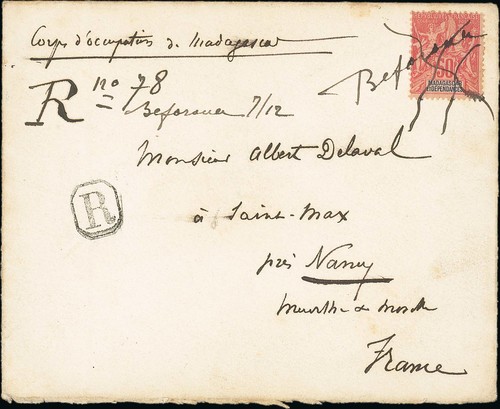 Corps d'occupation de Madagascar
R no 78
Beforona 7/12
Beforona
50
MADAGASCAR
ET DÉPENDANCES
Monsieur Albert Delaval
R
à Saint-Max
près Nancy
Meurthe & Moselle
France